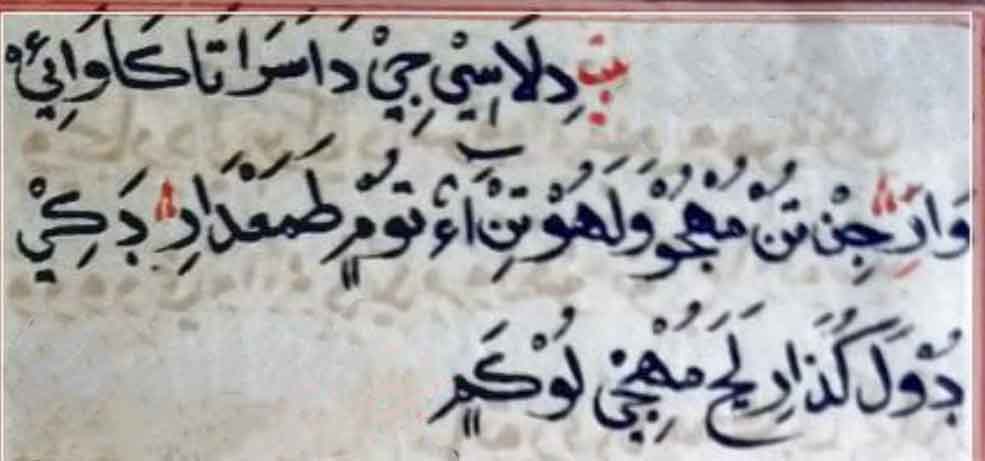 بيت دِلَاسِيْ جِيْ دَاسَرَا تَا كَا وَائِيْ
وَارِّ جِنْ تَنْ مُهْجُوْ وَلَهُوْ تِنْ آءُ تُومٍ طَمَعْدَارِ دَكِيْ
دُوْلَ گُذَارِ لَحَ مُهْجِيْ لُوْكَمٍ